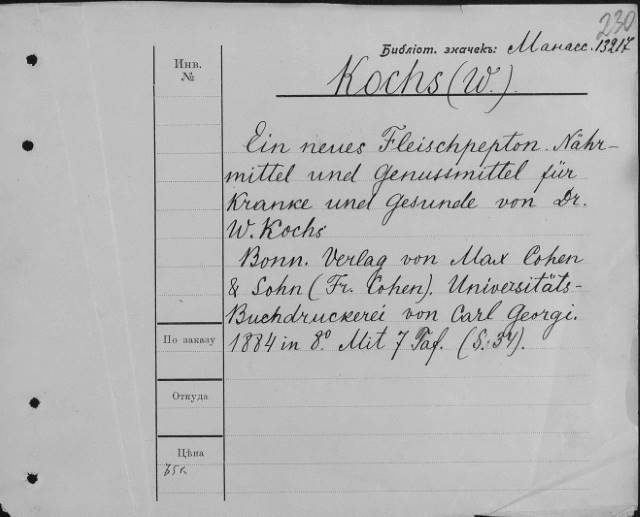 230
Библіот. значекъ: Манасс. 13217
Инв.
№
Kochs (W.).
Ein neues Fleischpepton. Nähr-
mittel und Genussmittel für
Kranke und Gesunde von Dr.
W. Kochs
Bonn. Verlag von Max Cohen
& Sohn (Fr. Cohen). Universitäts-
Buchdruckerei von Carl Georgi.
1884 in 8º Mit 7 Taf. (S. 34).
По заказу
Откуда
Цѣна
75к.